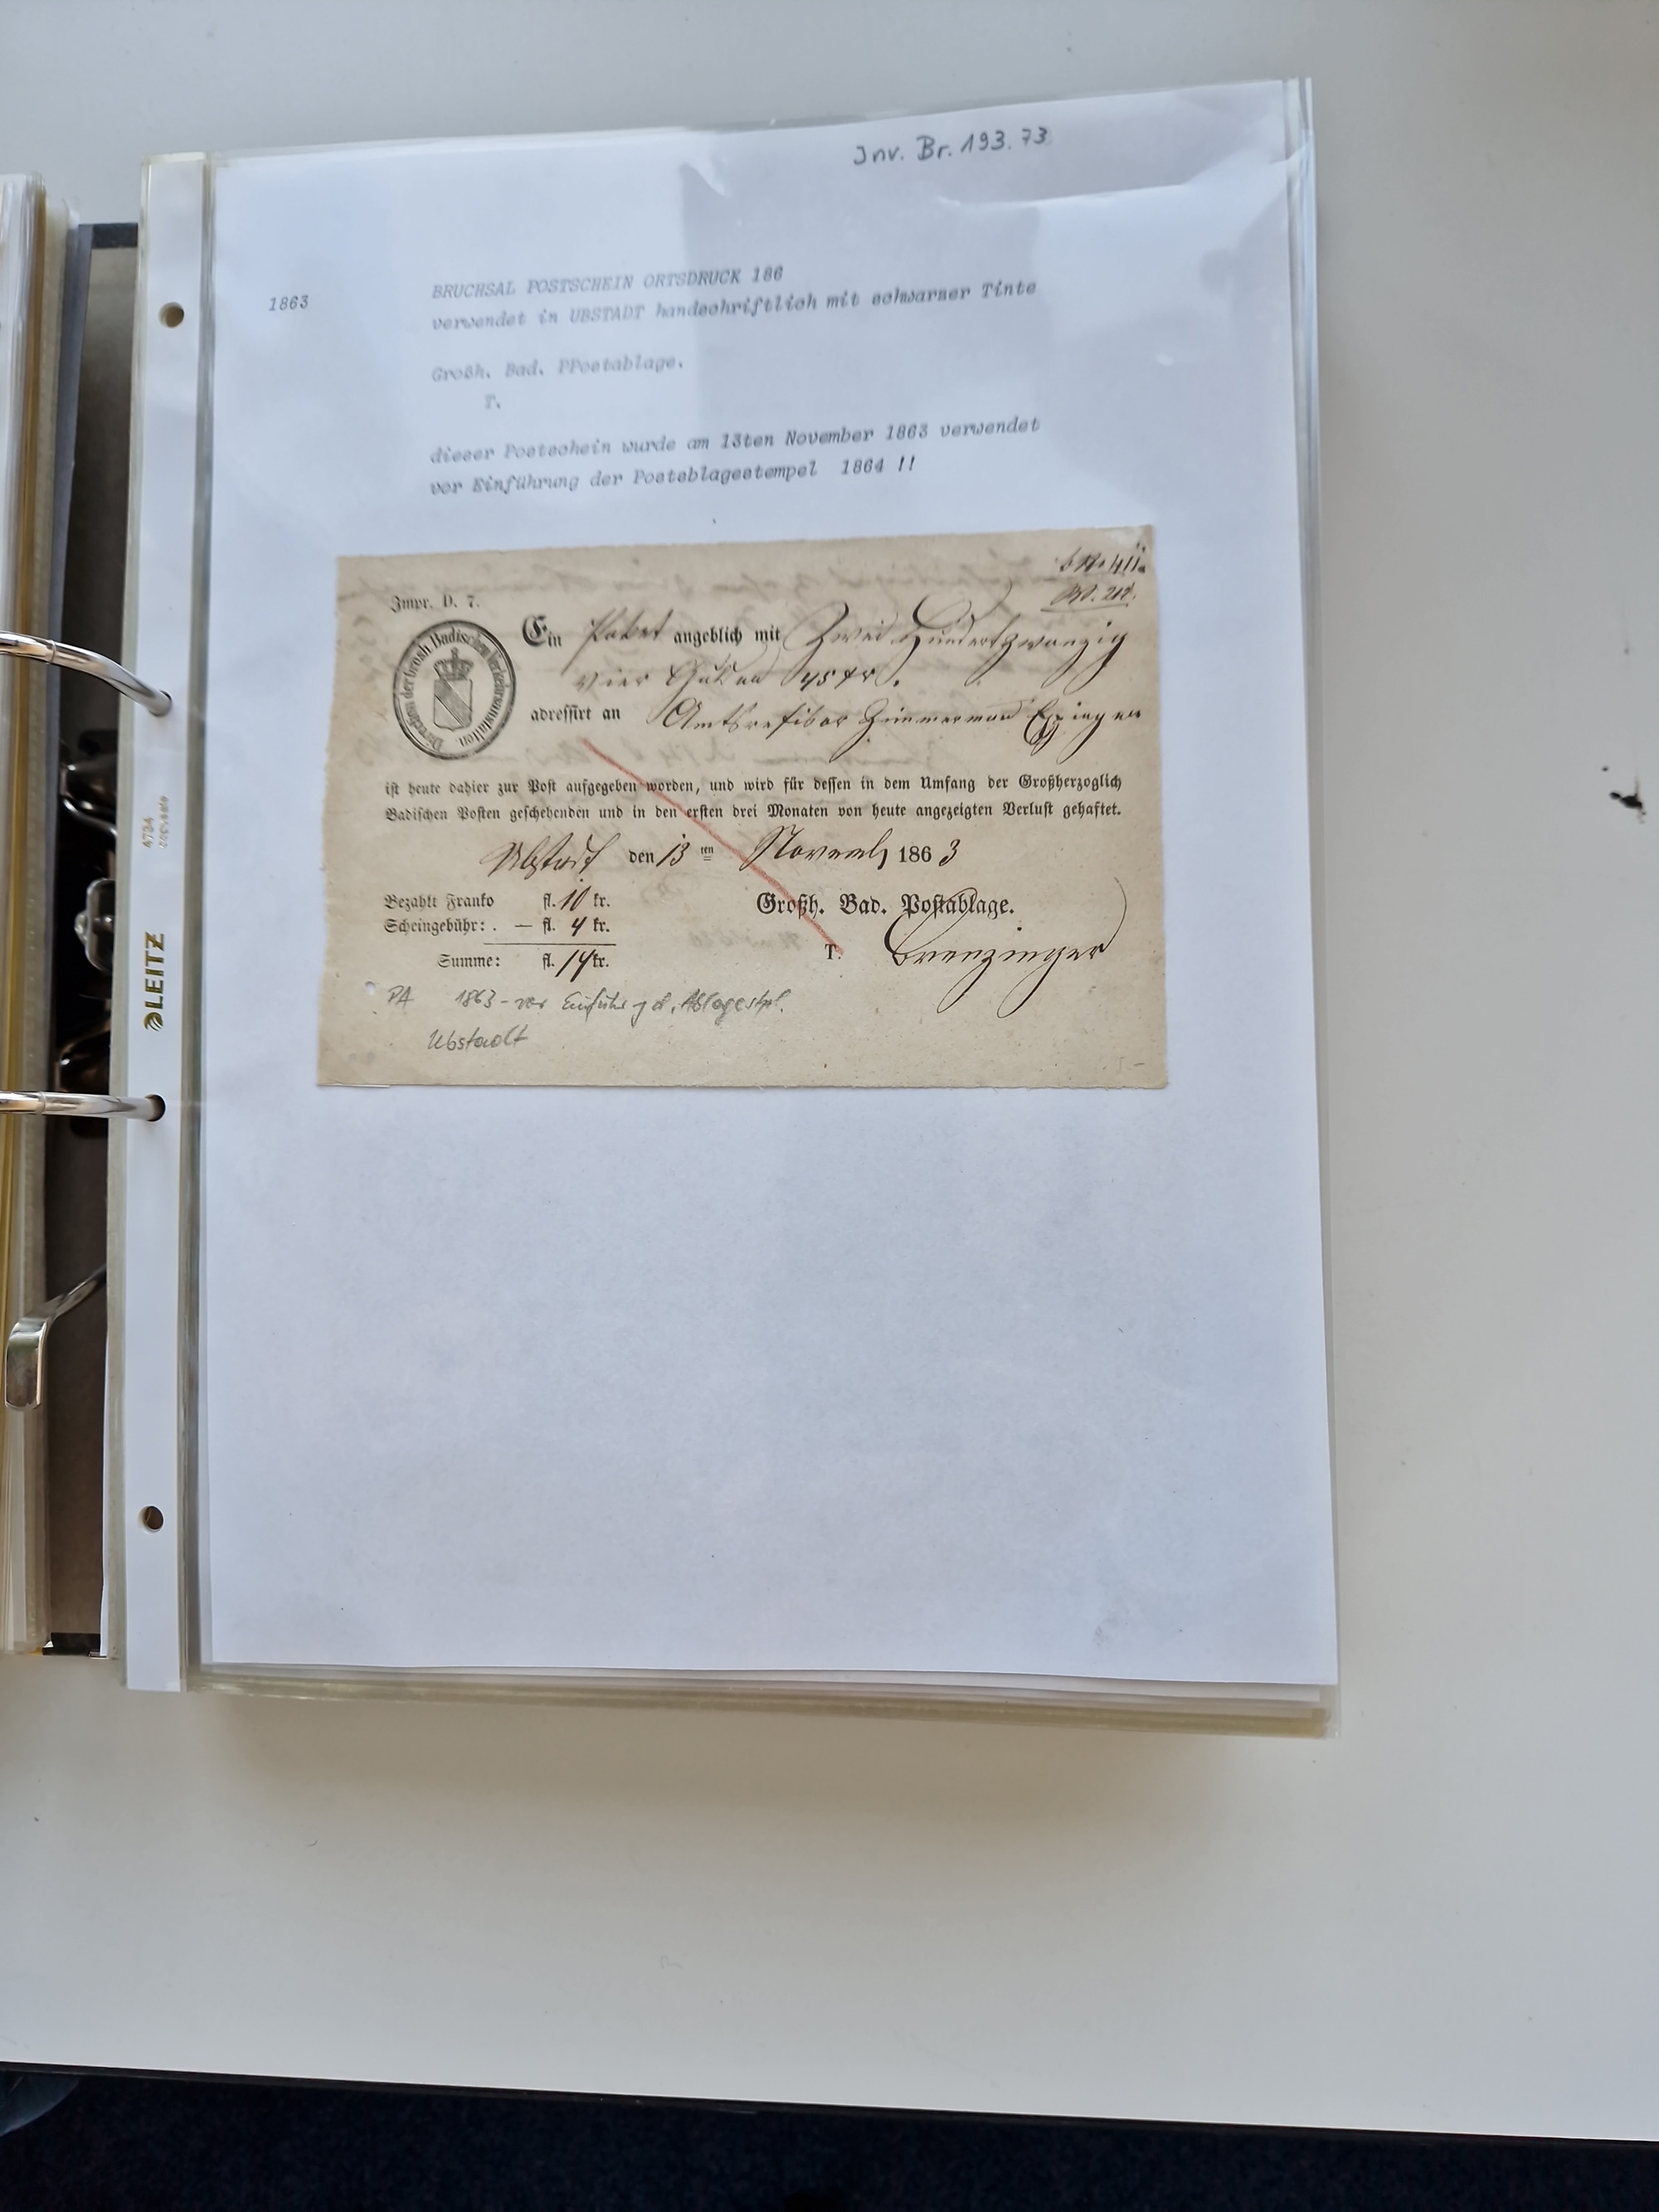 Inv. Br. 193.73
1863
BRUCHSAL POSTSCHEIN ORTSDRUCK 186
verwendet in UBSTADT handschriftlich mit schwarner Tinte
Großh. Bad. PPostablage.
T.
dieser Postschein wurde am 13ten November 1863 verwendet
vor Einführung der Posteblagestempel 1864 !!
Impr. D. 7.
Direction der Grosh. Badischen Verkehrsanstalten
Ein Paket angeblich mit Zwei Hundert zwanzig
vier Gulden 45 kr.
adressirt an Amtsrevisor Zimmermann Eppingen
ist heute dahier zur Post aufgegeben worden, und wird für dessen in dem Umfang der Großherzoglich
Badischen Posten geschehenden und in den ersten drei Monaten von heute angezeigten Verlust gehaftet.
Ubstadt den 13 ten Novemb 1863
Bezahlt Franko fl. 10 kr.
Scheingebühr: . — fl. 4 kr.
Summe: fl. 14 kr.
Großh. Bad. Postablage.
T. Brenzinger
PA 1863 - vor Einführg d. Ablagestpl.
Ubstadt
LEITZ
4734